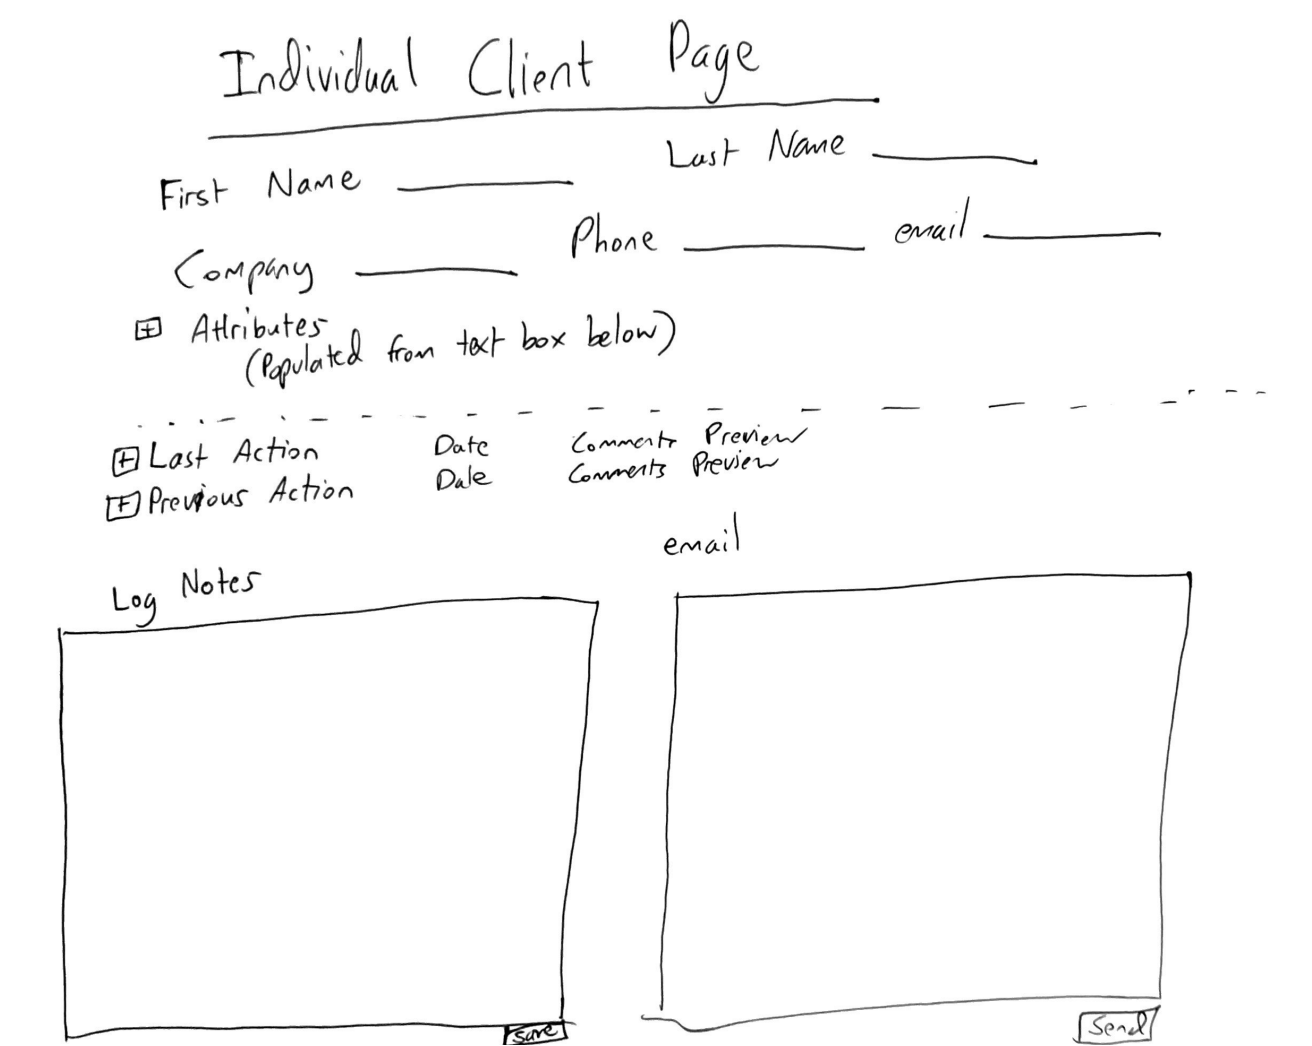 Individual Client Page
First Name
Last Name
Company
Phone
email
+ Attributes
(Populated from text box below)
+ Last Action Date Comments Preview
+ Previous Action Date Comments Preview
Log Notes
email
Save
Send